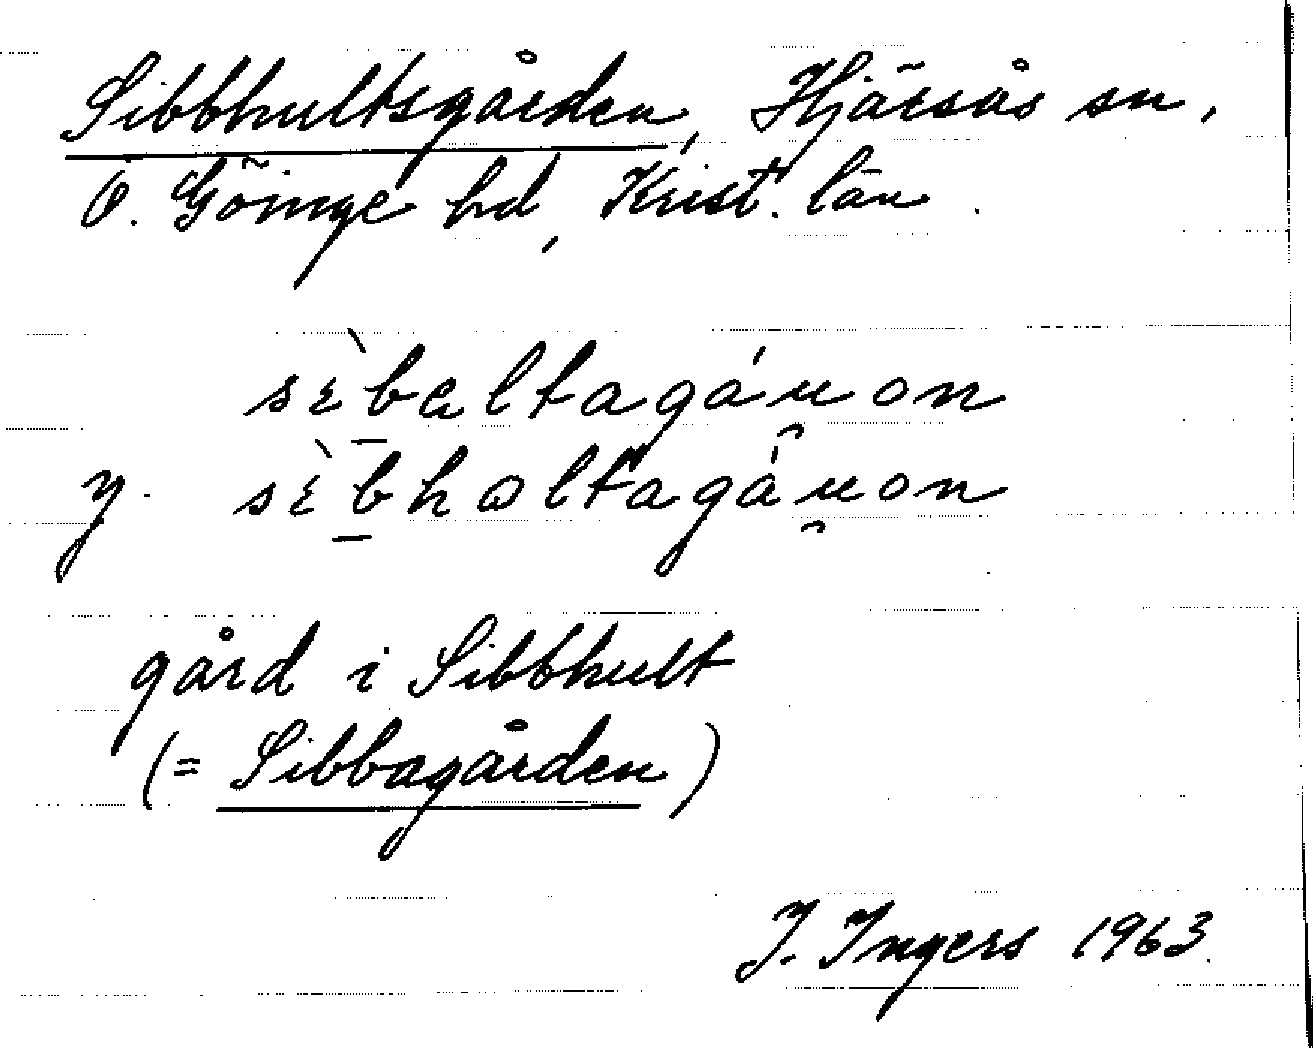 Sibbhultsgården, Hjärsås sn,
Ö. Göinge hd, Krist. län.
sὲbaltagáu̯on
y. sὲbhωltagáu̯on
gård i Sibbhult
(= Sibbagården)
I. Ingers 1963.